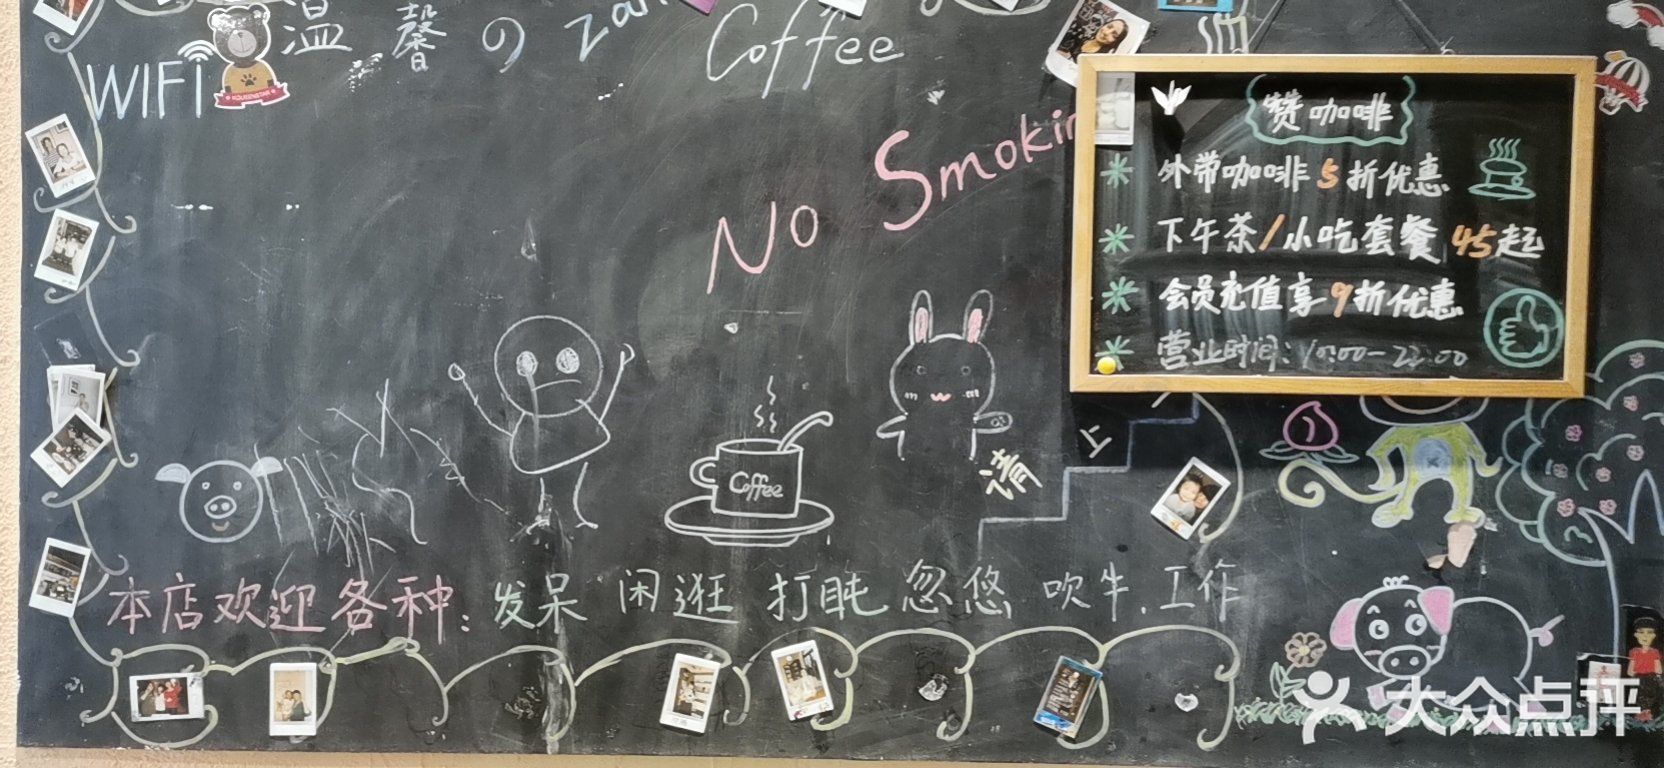 温馨の Zan Coffee
WIFI
No Smokin
赞咖啡
外带咖啡5折优惠
下午茶/小吃套餐45起
会员充值享9折优惠
营业时间:10:00-22:00
Coffee
请上
本店欢迎各种:发呆 闲逛 打盹 忽悠 吹牛.工作
大众点评